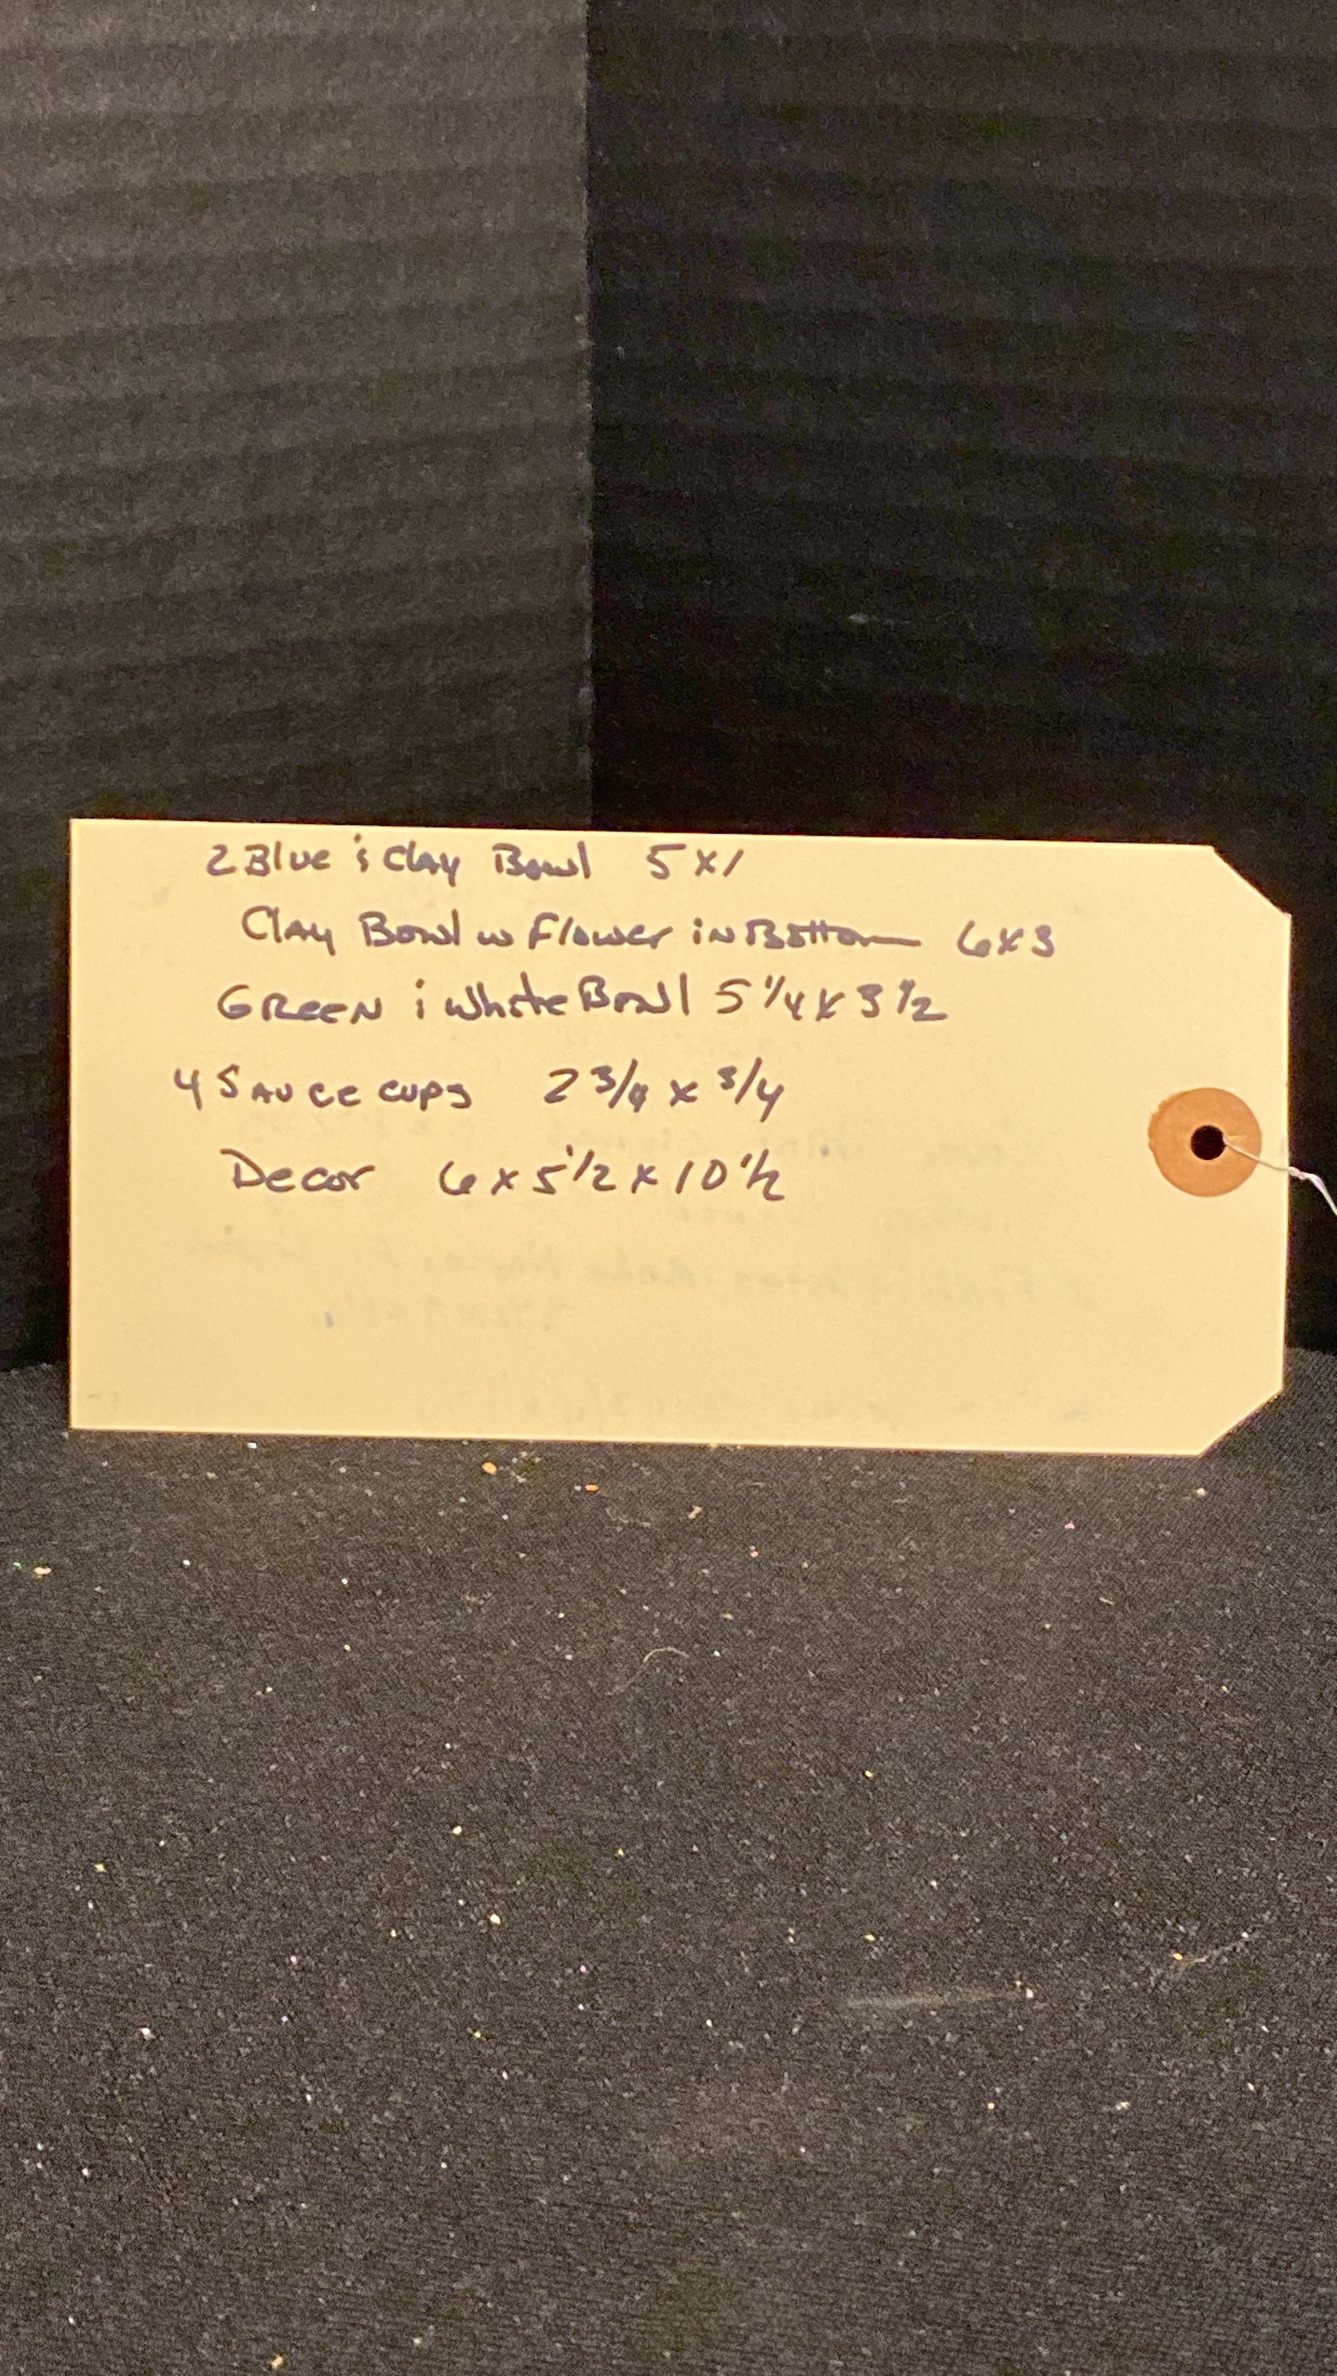 2 Blue & Clay Bowl 5 x 1
Clay Bowl w Flower in Bottom 6 x 3
GREEN & White Bowl 5 1/4 x 3 1/2
4 SAUCE CUPS 2 3/4 x 3/4
Decor 6 x 5 1/2 x 10 1/2